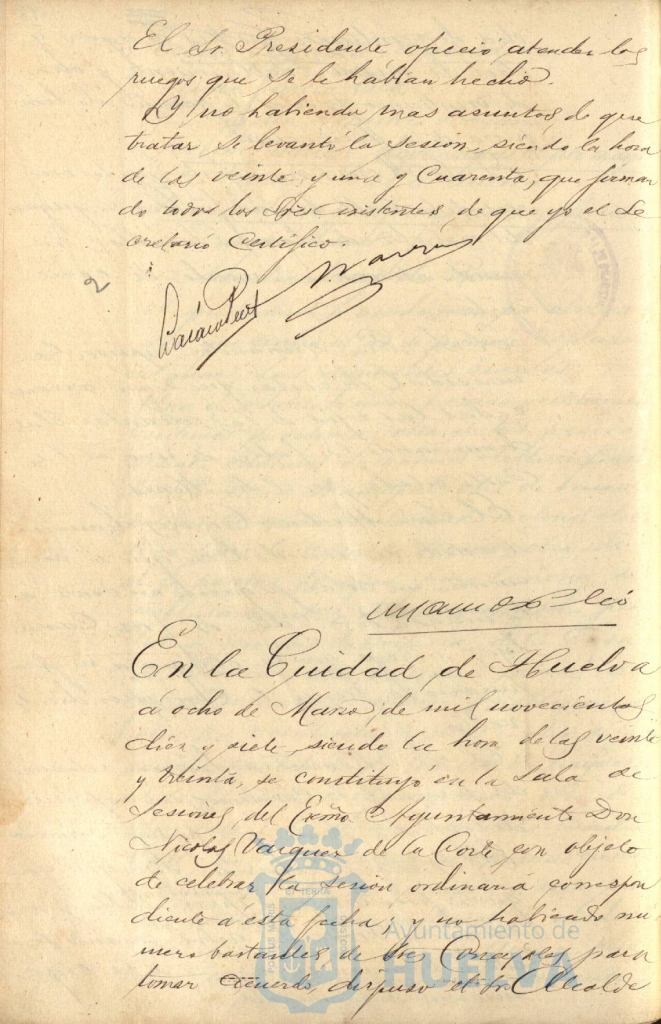 El Sr. Presidente ofreció atender los
ruegos que se le habían hecho.
Y no habiendo mas asuntos de que
tratar se levantó la sesión, siendo la hora
de las veinte y una y Cuarenta, que firman
do todos los Sres asistentes, de que yo el Se
cretario Certifico.
2
En la Cuidad de Huelva
á ocho de Marzo de mil novecientos
diez y siete, siendo la hora de las veinte
y treinta, se constituyó en la Sala de
Sesiones del Exmo Ayuntamiento Don
Nicolas Vazquez de la Corte con objeto
de celebrar la sesión ordinaria correspon
diente á esta fecha; y no habiendo nu
mero bastantes de Sres Concejales para
tomar acuerdo dispuso el Sr. Alcalde
Ayuntamiento de
HUELVA